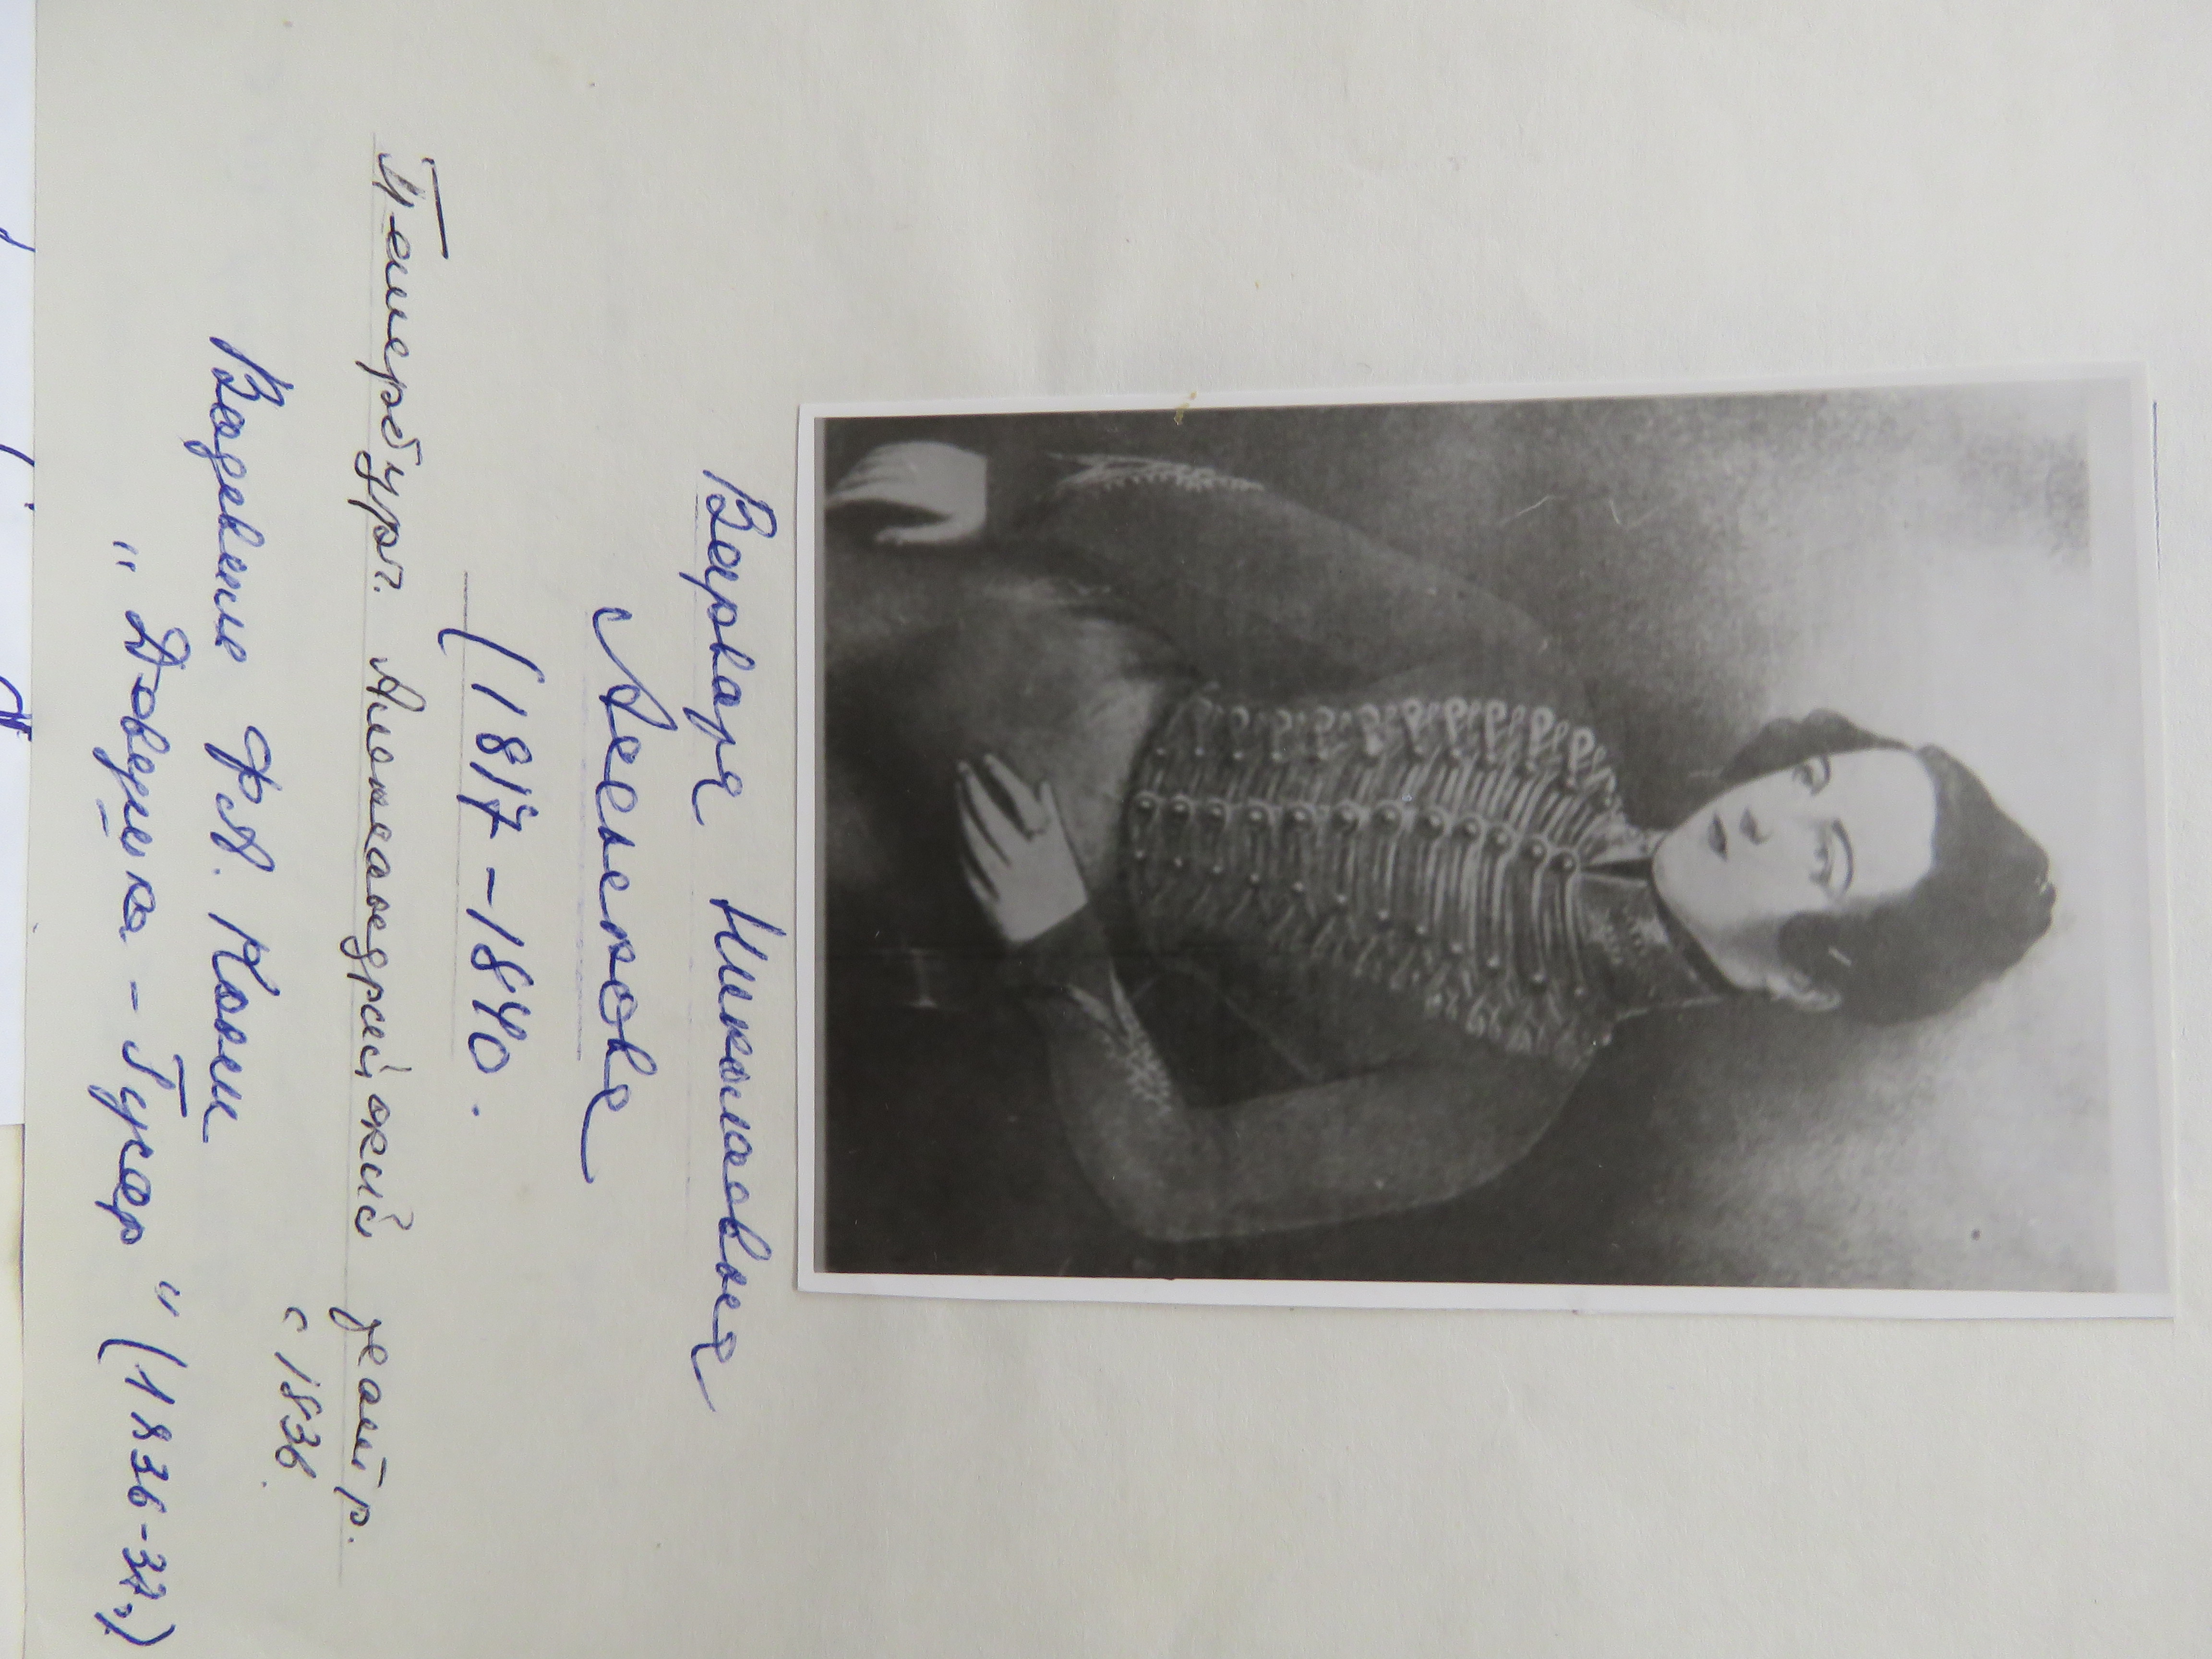 Варвара Николаевна
Асенкова
(1817-1840.
Петербург. Александрийский театр.
с 1836.
Водевиль Ф.А. Кони
„Девушка-Гусар" (1836-37г.)